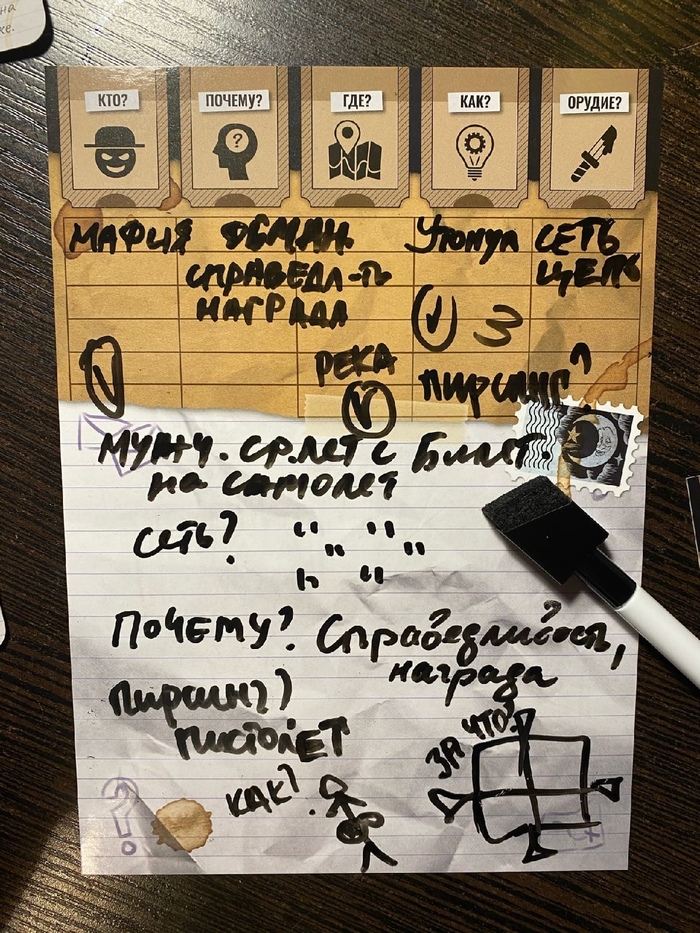 на
ке.
КТО? ПОЧЕМУ? ГДЕ? КАК? ОРУДИЕ?
?
МАФИЯ ОБМАН. Утонул СЕТЬ
СПРАВЕДЛ-ТЬ ЦЕПЬ
НАГРАДА 3
РЕКА ПИРСИНГ?
МУЖЧ. СР.ЛЕТ С БИЛЕТ.
НА САМОЛЕТ
СЕТЬ? " "
" "
" "
ПОЧЕМУ? Справедливость,
награда
ПИРСИНГ?)
ПИСТОЛЕТ
ЗА ЧТО?
КАК?